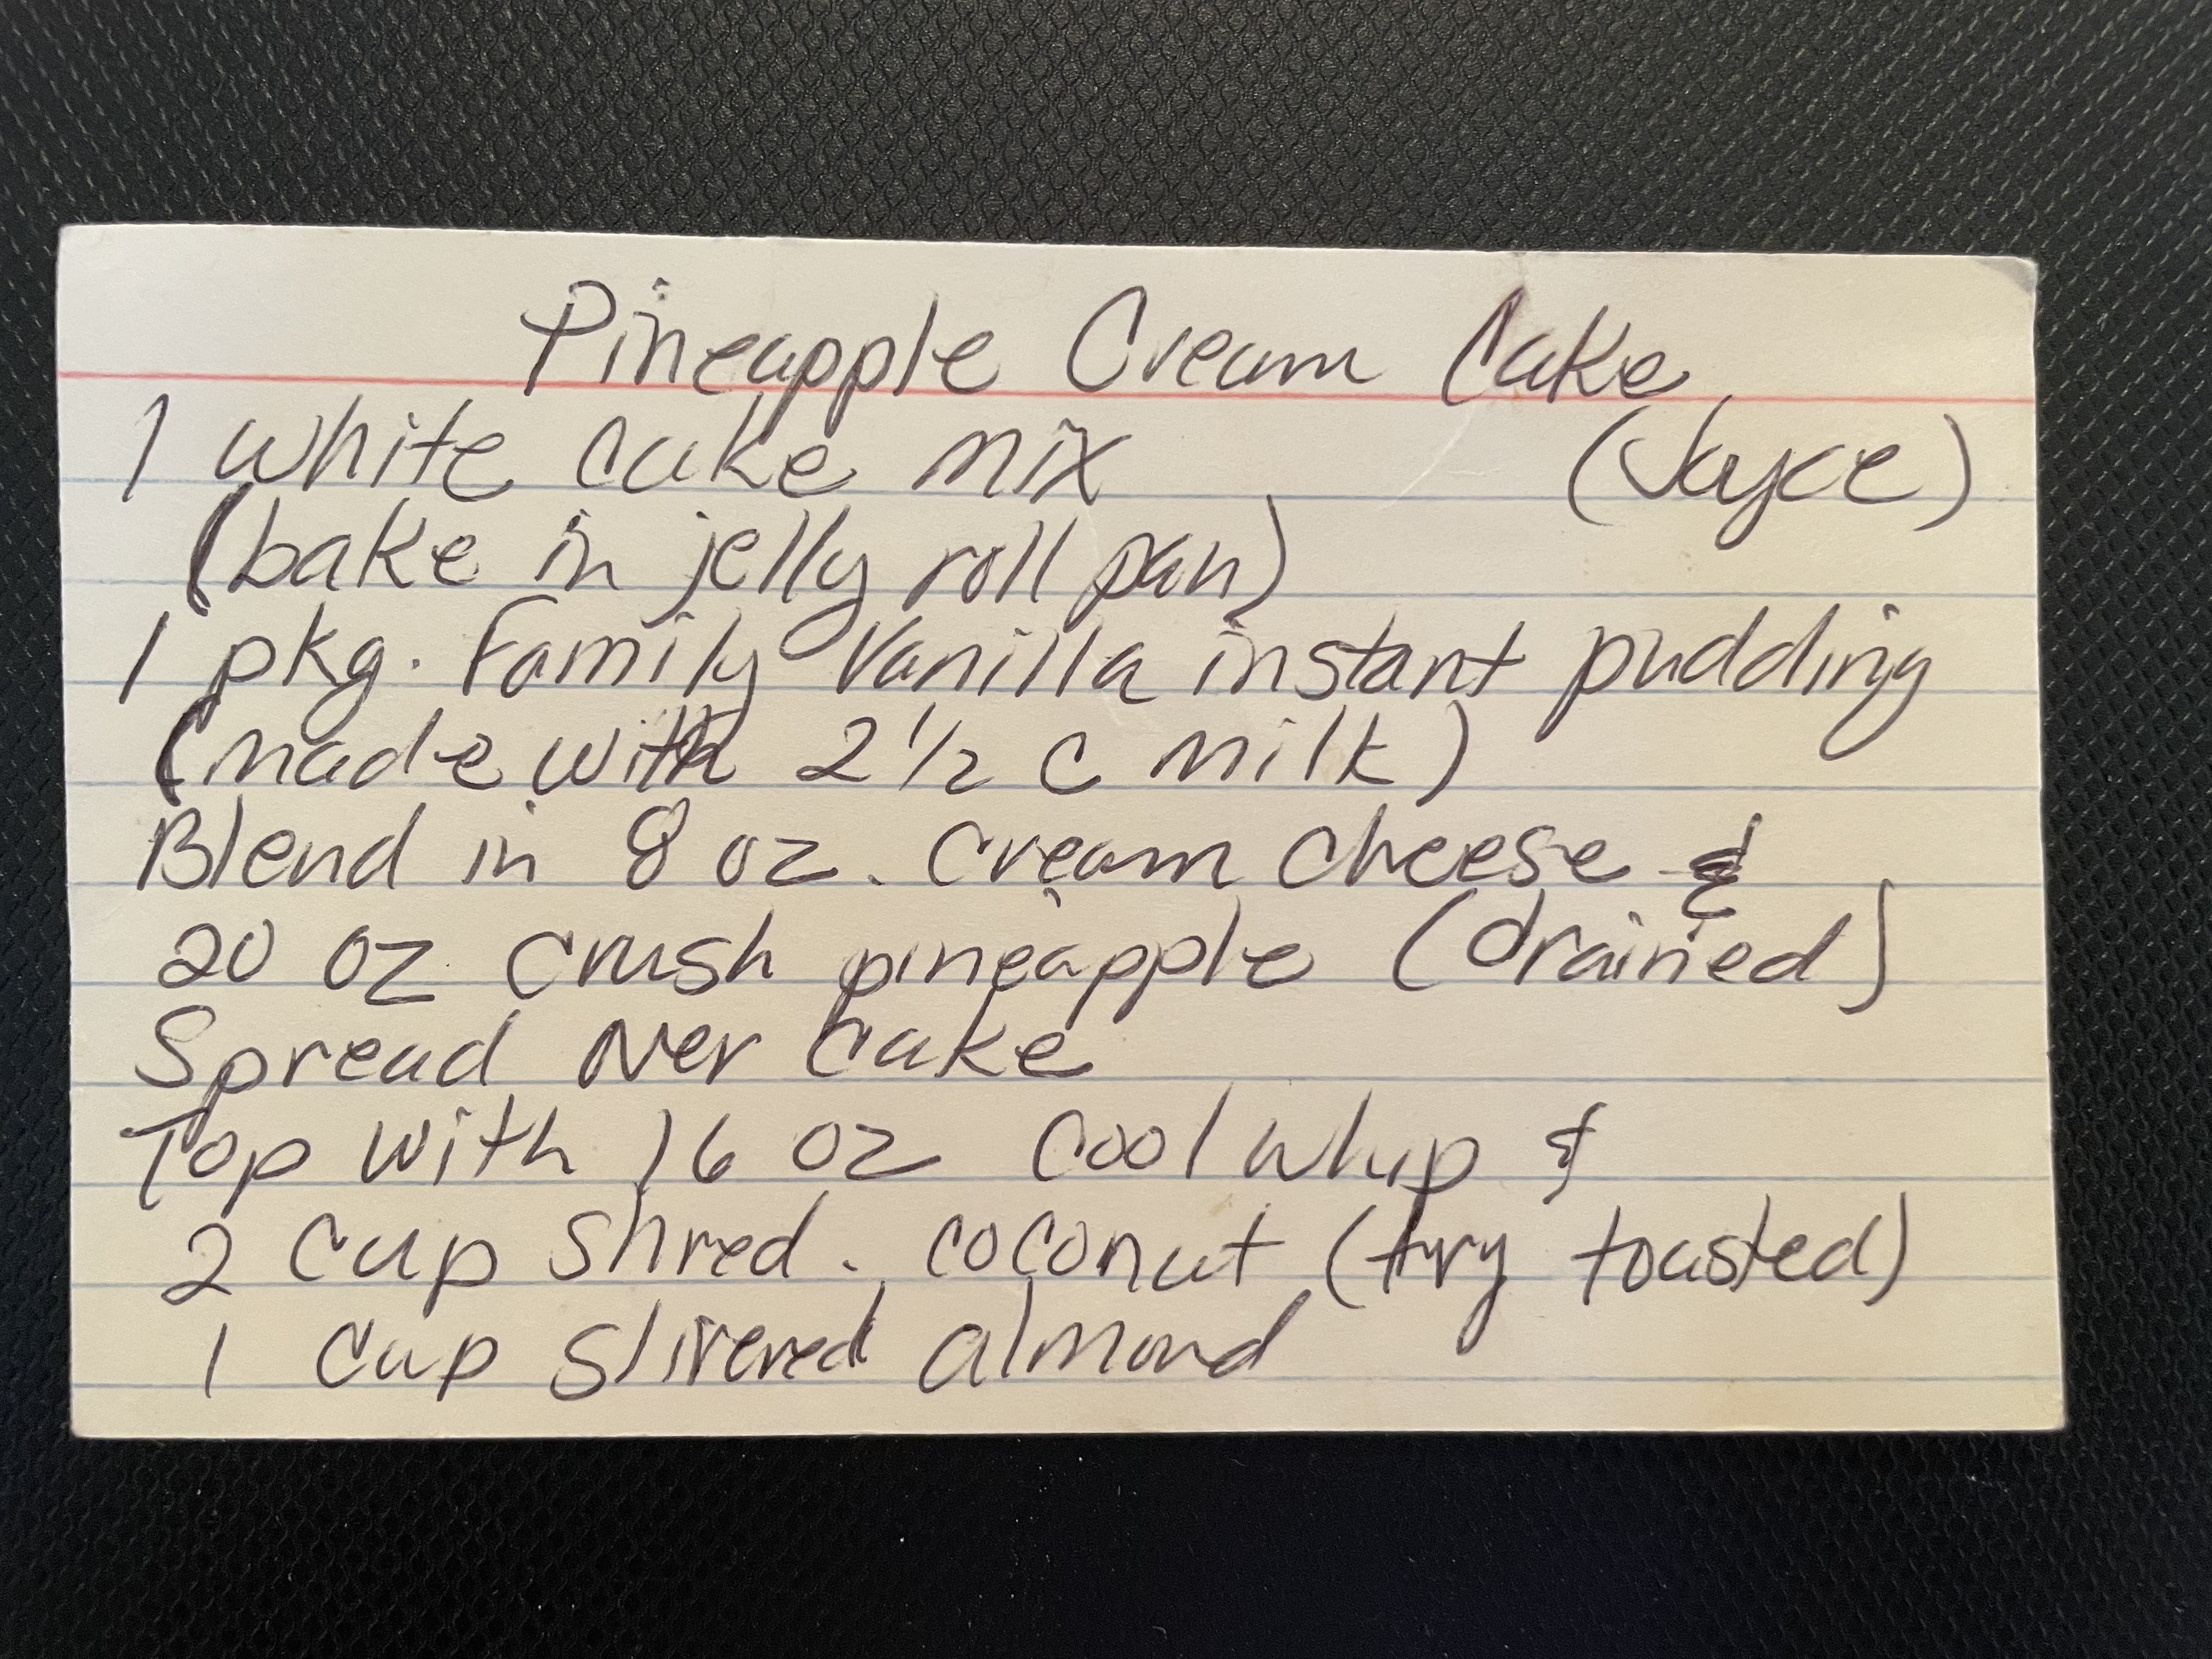 Pineapple Cream Cake
1 white cake mix (Jayce)
(bake in jelly roll pan)
1 pkg. Family Vanilla instant pudding
(made with 2 1/2 c milk)
Blend in 8 oz. cream cheese &
20 oz crush pineapple (drained)
Spread over cake
Top with 16 oz cool whip &
2 cup shred. coconut (try toasted)
1 cup slivered almond